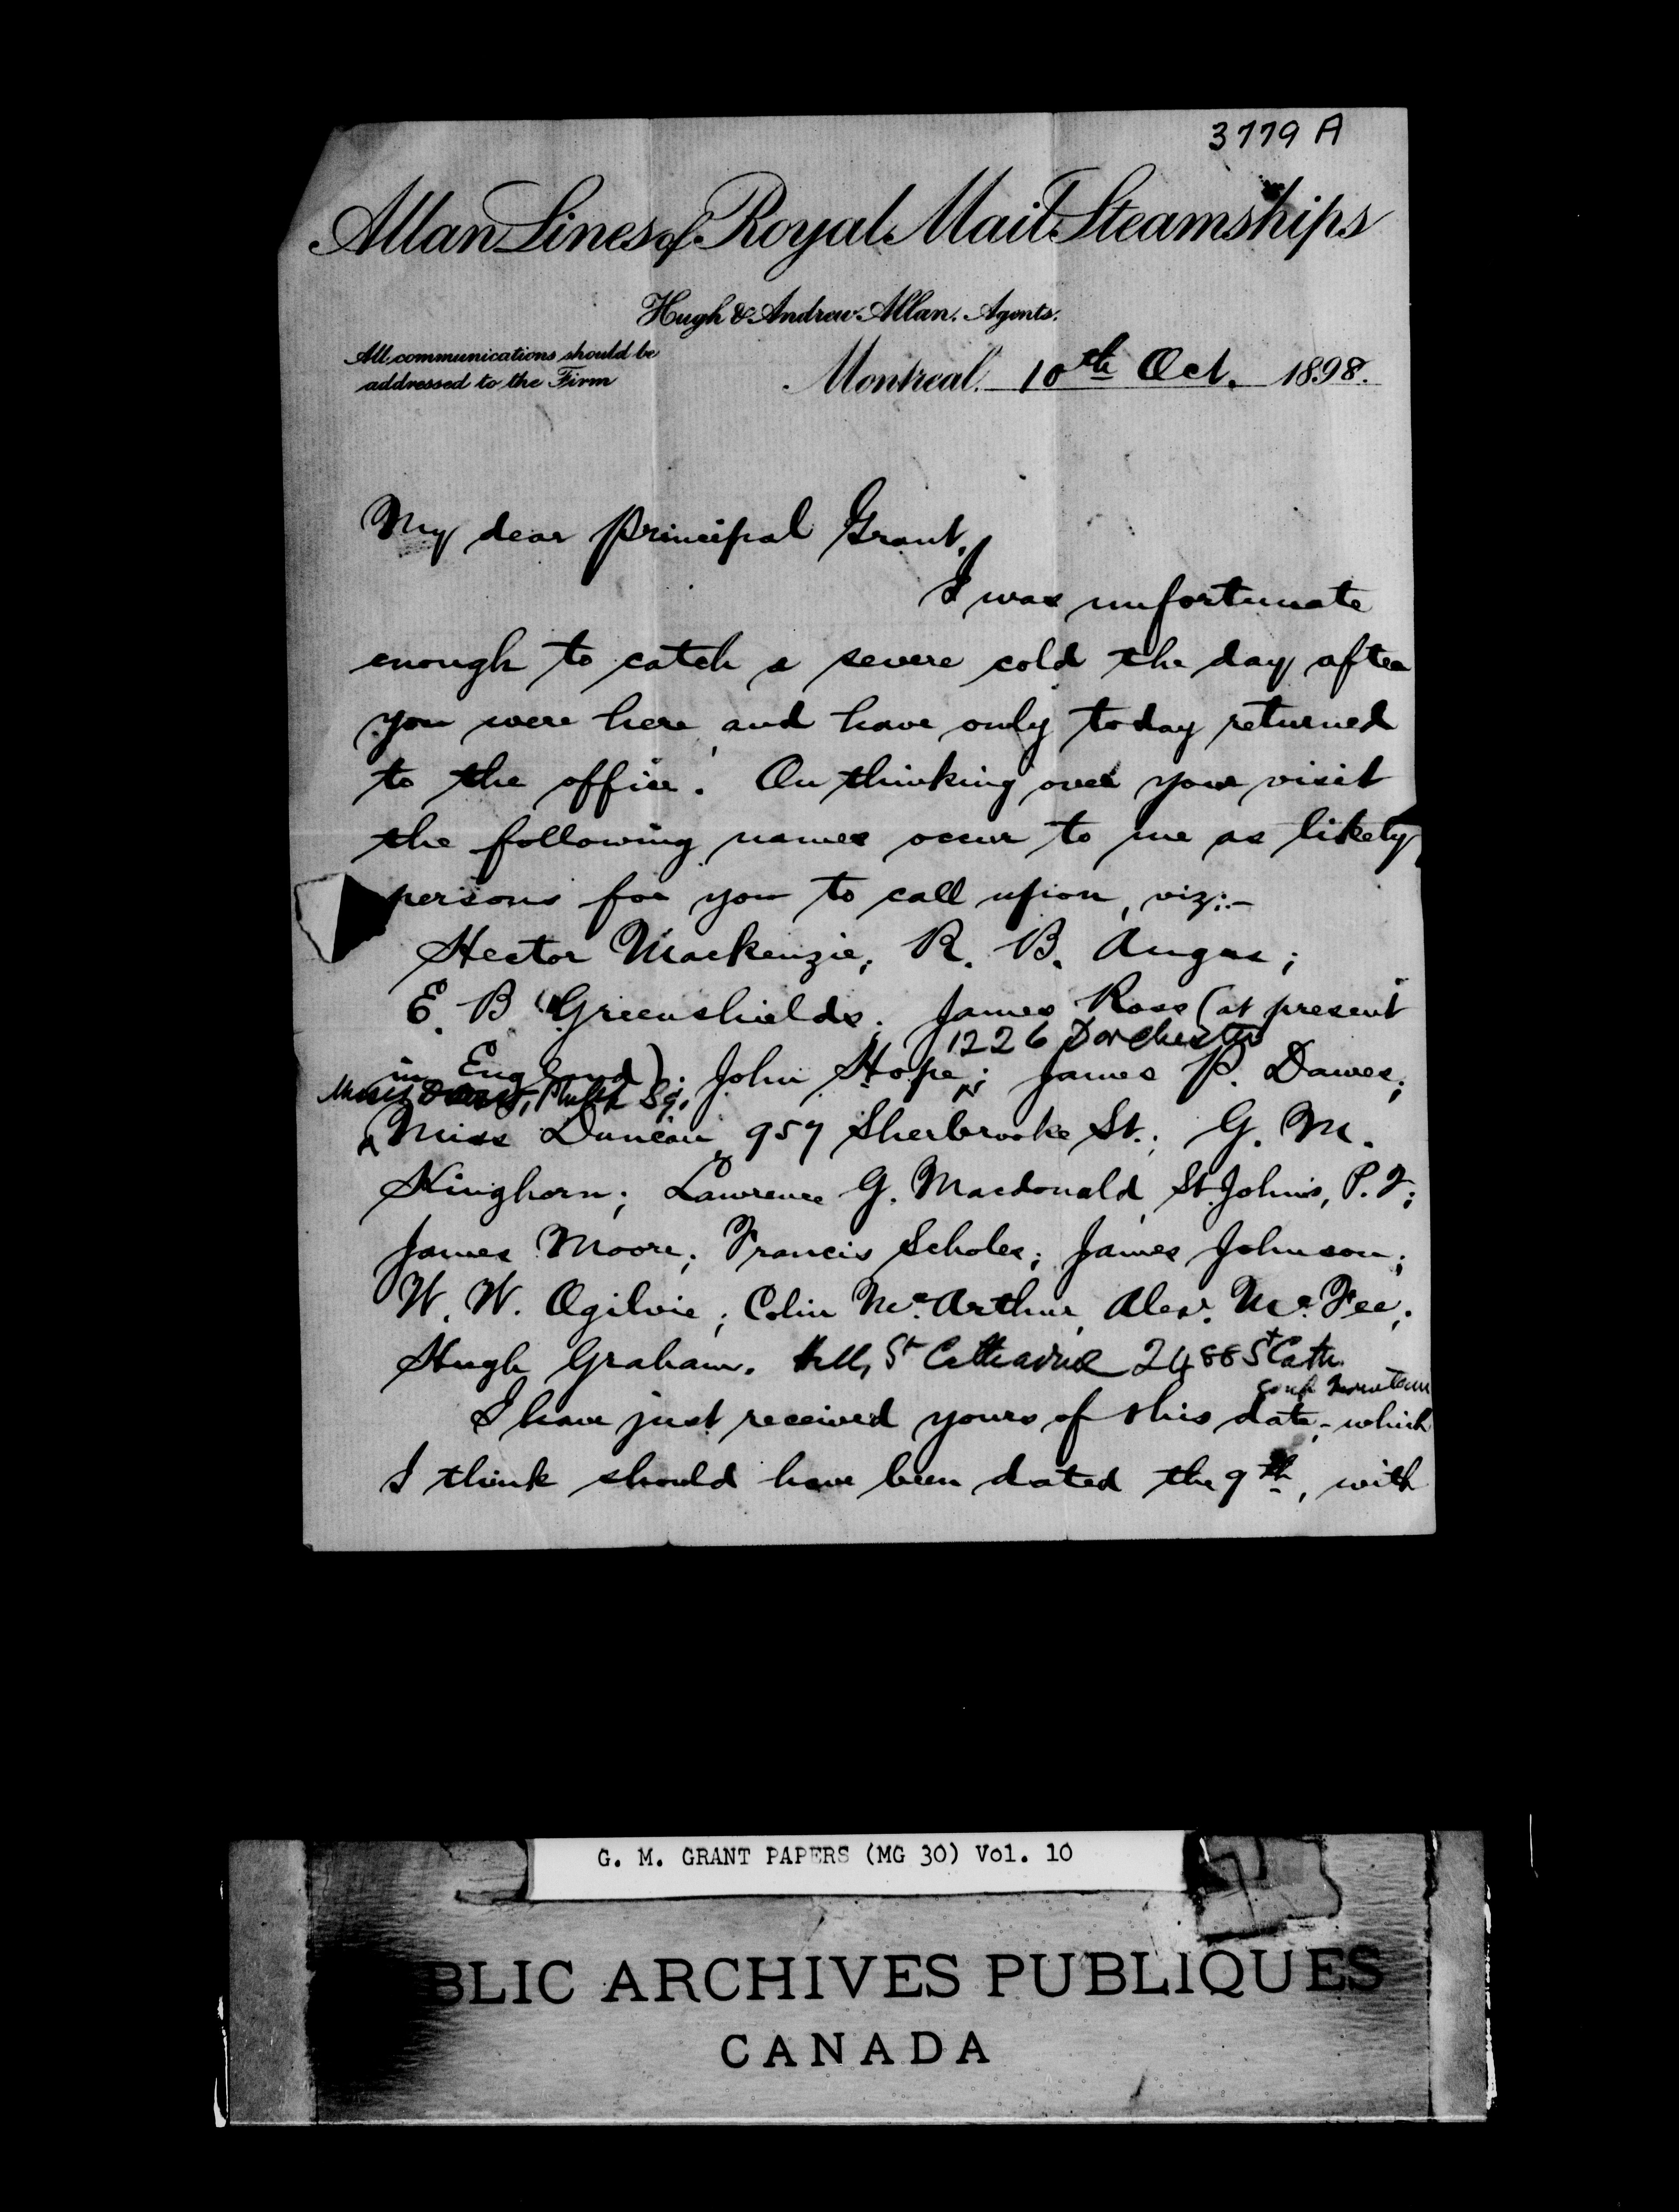 3779 A
Allan Lines of Royal Mail Steamships
Hugh & Andrew Allan. Agents.
All communications should be
addressed to the Firm
Montreal. 10th Oct. 1898.
My dear Principal Grant,
I was unfortunate
enough to catch a severe cold the day after
you were here, and have only today returned
to the office. On thinking over your visit
the following names occur to me as likely
persons for you to call upon, viz:-
Hector Mackenzie; R. B. Angus;
E. B. Greenshields; James Ross (at present
1226 Dorchester
in England); John Hope; James P. Dawes;
Phillips Sq.
Miss Duncan, 957 Sherbrooke St.; G. M.
Kinghorn; Lawrence G. Macdonald, St. Johns, P.Q;
James Moore; Francis Scholes; James Johnson;
W. W. Ogilvie; Colin McArthur, Alexr. McFee;
Hugh Graham. St Catherine 2488 St Cath.
I have just received yours of this date, - which
I think should have been dated the 9th, with
G. M. GRANT PAPERS (MG 30) Vol. 10
BLIC ARCHIVES PUBLIQUES
CANADA